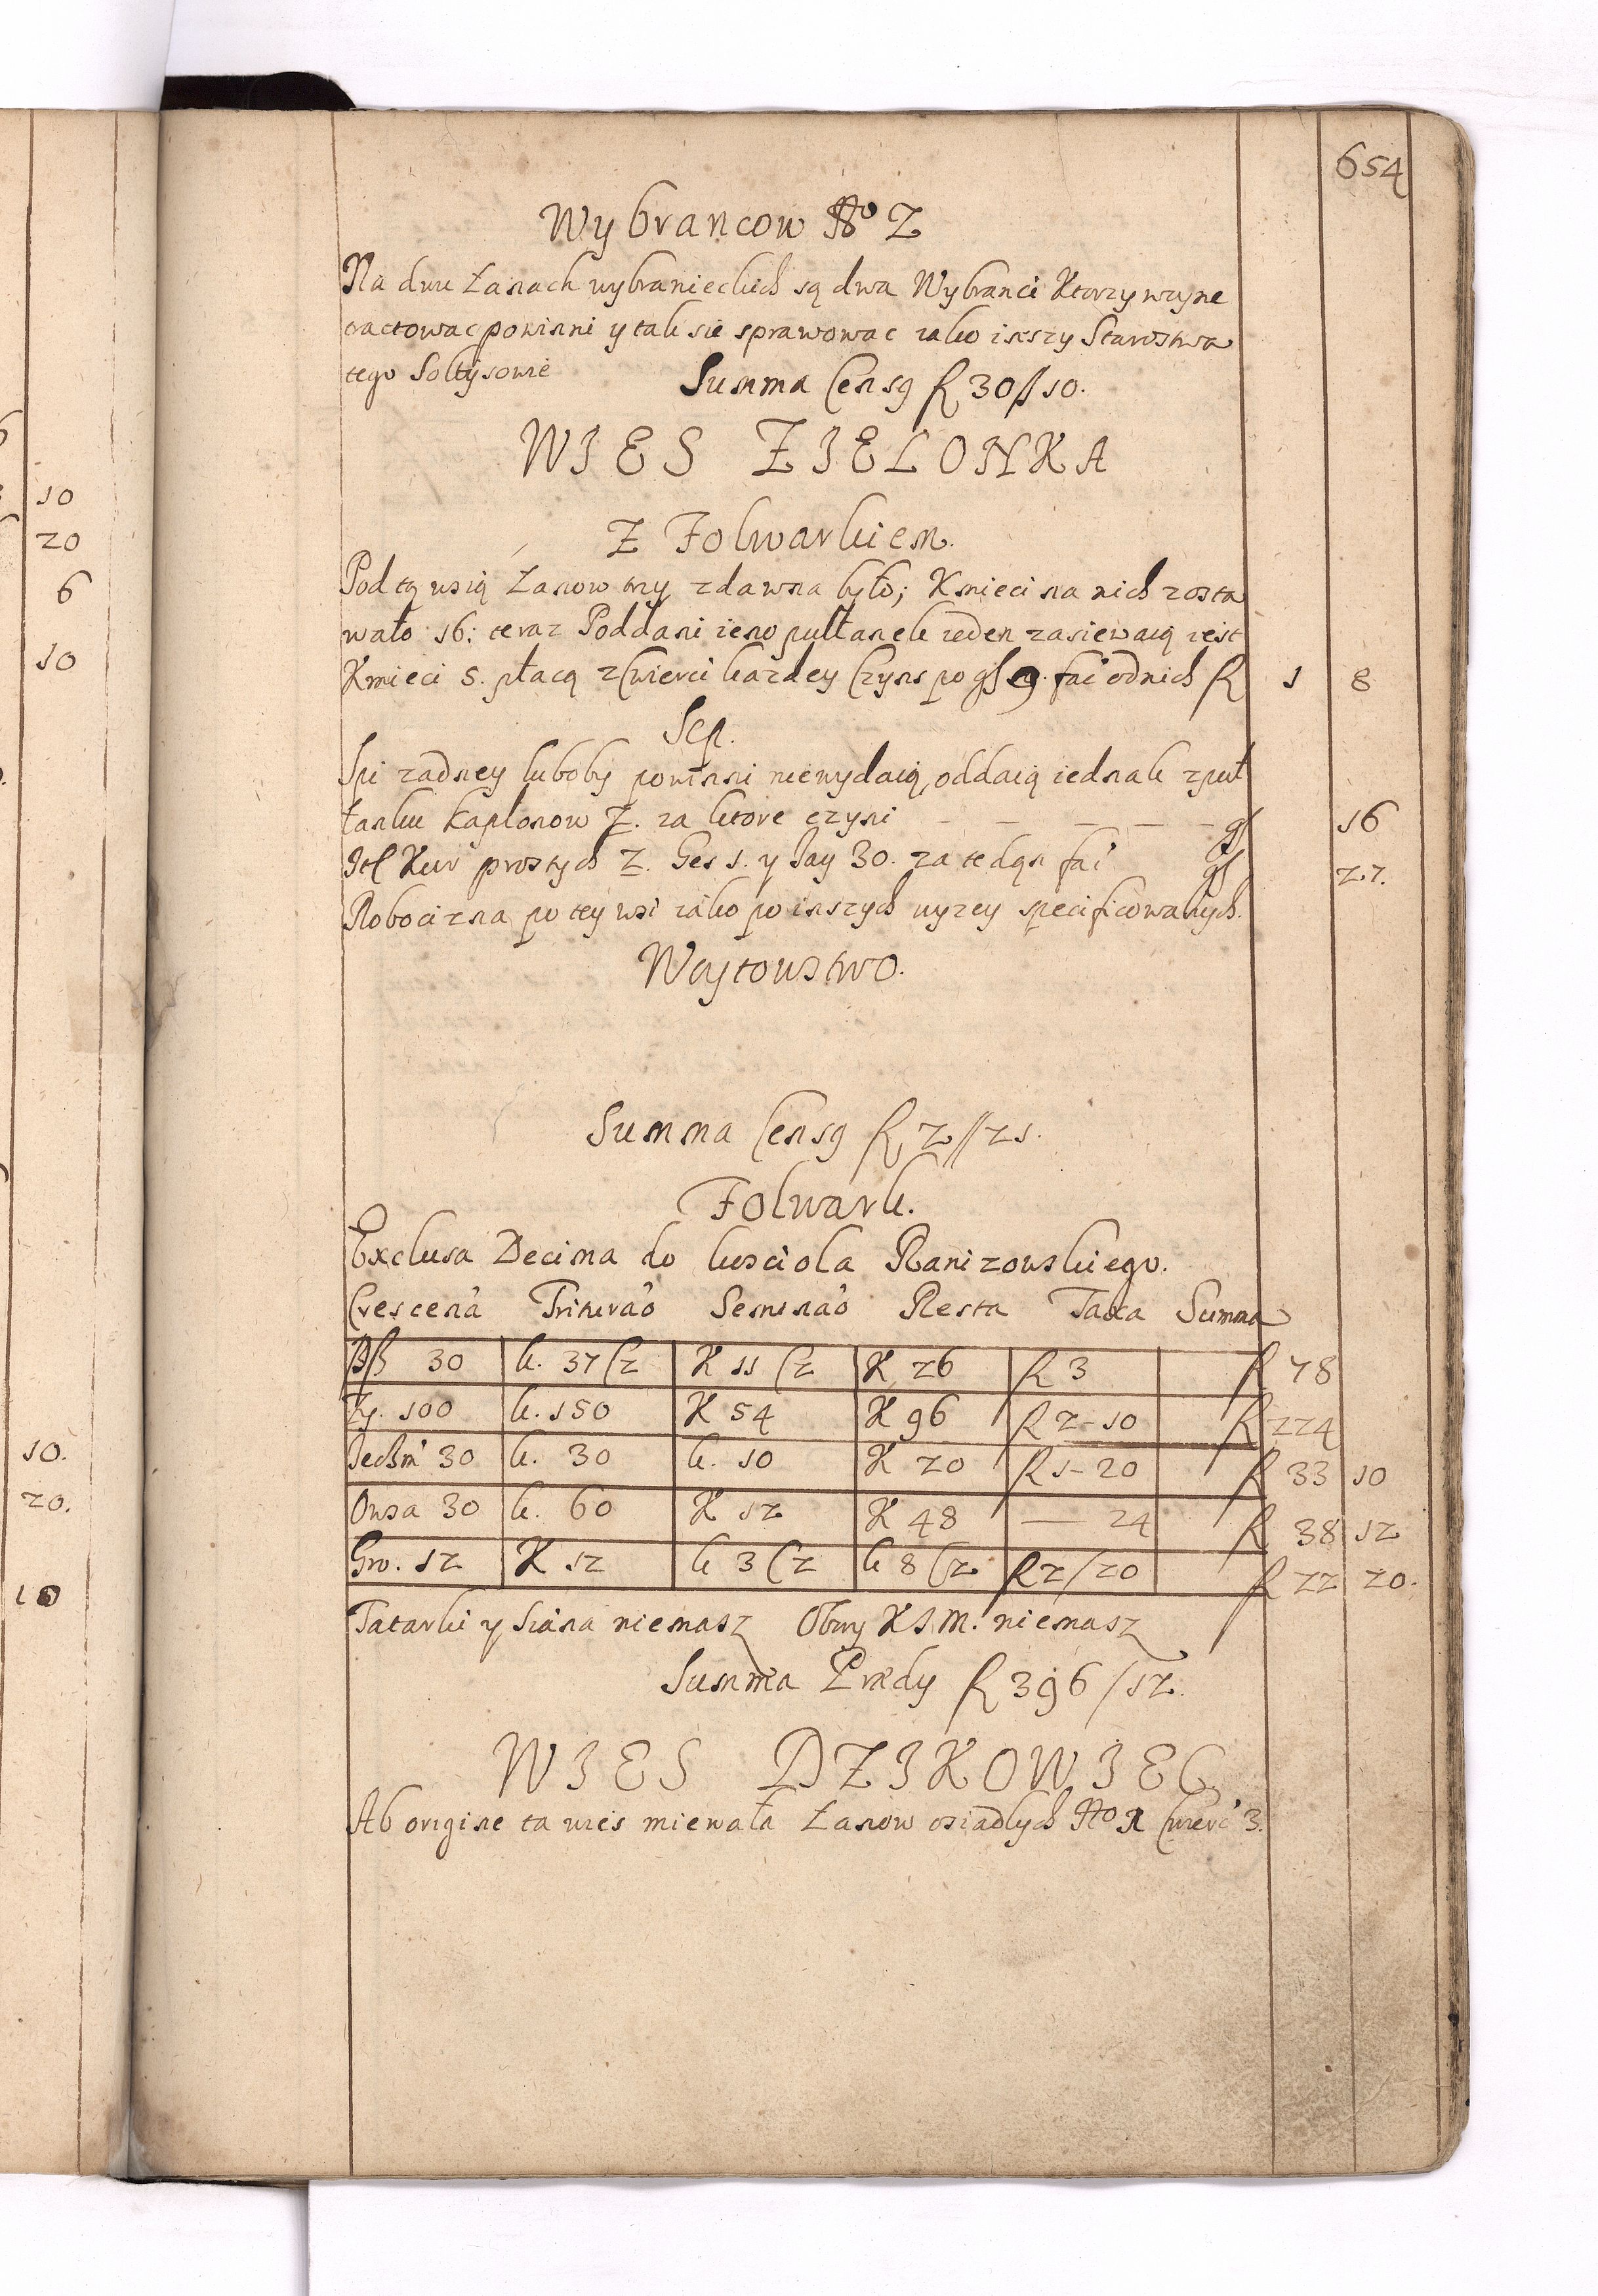 654
Wybrancow No 2
Na dwu Łanach wybranieckich są dwa Wybranci Ktorzy woyne
tractowac powinni y tak sie sprawowac iako inszy Starostwa
tego Soltysowie Summa Censg f 30//10.
WIES ZIELONKA
Z Folwarkiem.
Pod tą wsią Łanow trzy zdawna było; Kmieci na nich zosta
wało 16: teraz Poddani ieno pułłanek ieden zasiewaią iest
Kmieci 5. płacą z Cwierci kazdey Czyns po gl 9. fac od nich f 1 8
Sep.
Spi zadney luboby powinni niewydaią, oddaią iednak z puł
łanku kaplonow 2. za ktore czyni — — — — — gl 16
Itl Kur prostych 2. Ges 1. y Jay 30. za te dgn fac gl 27.
Robocizna po tey wsi iako po inszych wyzey specificowanych.
Woytowstwo.
Summa Censg f 2//21.
Folwark.
Exclusa Decima do kosciola Ranizowskiego.
Crescena Triturao Seminao Resta Taxa Summa
30 k. 37 Cz K 11 Cz K 26 f 3 f 78
Zy. 100 k. 150 K 54 K 96 f 2-10 f 224
Jeczm 30 k. 30 k. 10 K 20 f 1-20 f 33 10
Owsa 30 k. 60 K 12 K 48 — 24 f 38 12
Gro. 12 K 12 k 3 Cz k 8 Cz f 2/20 f 22 20.
Tatarki y Siana niemasz Obory K I M. niemasz
Summa Prædy f 396/12.
WIES DZIKOWIEC
Ab origine ta wies miewała Łanow osiadlych No Cwierc 3.
10
20
6
10
10.
20.
10